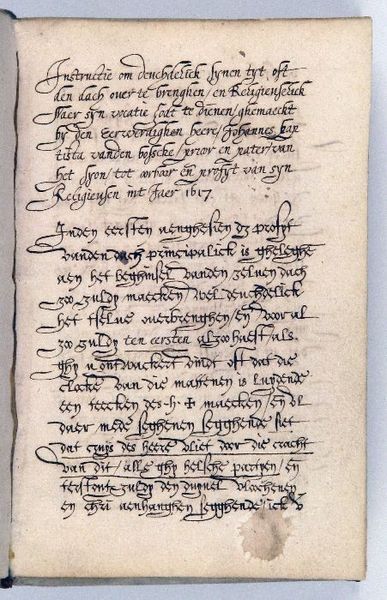 Instructie om deuchdelick synen tyt oft
den dach over te brenghen / en Religieuselick
Naer syn vocatie Godt te dienen / ghemaeckt
by den eerwerdighen heere / Johannes bap
tista vanden bossche / prior en pater / van
het Syon / tot orboor en profyt van syn
Religieusen int Jaer 1617.
Inden eersten aenghesien dz profyt
vanden dach principalick is gheleghe
aen het beghinsel vanden selven dach
zoo zuldy maecken / wel deuchdelick
het selve overbrenghen / en voor al
zoo zuldy ten eersten alzoo haest / als
ghy u ontwaeckert vindt oft dat die
clocke van die mattenen is luydende
een teecken des h + maecken / en v
daer mede seghenen segghende siet
dat cruys des heere vliet door die cracht
van dit / alle ghy helsche partyen / en
terstont zuldy den duyvel vloecken
en chri aenhanghen segghende / ick v